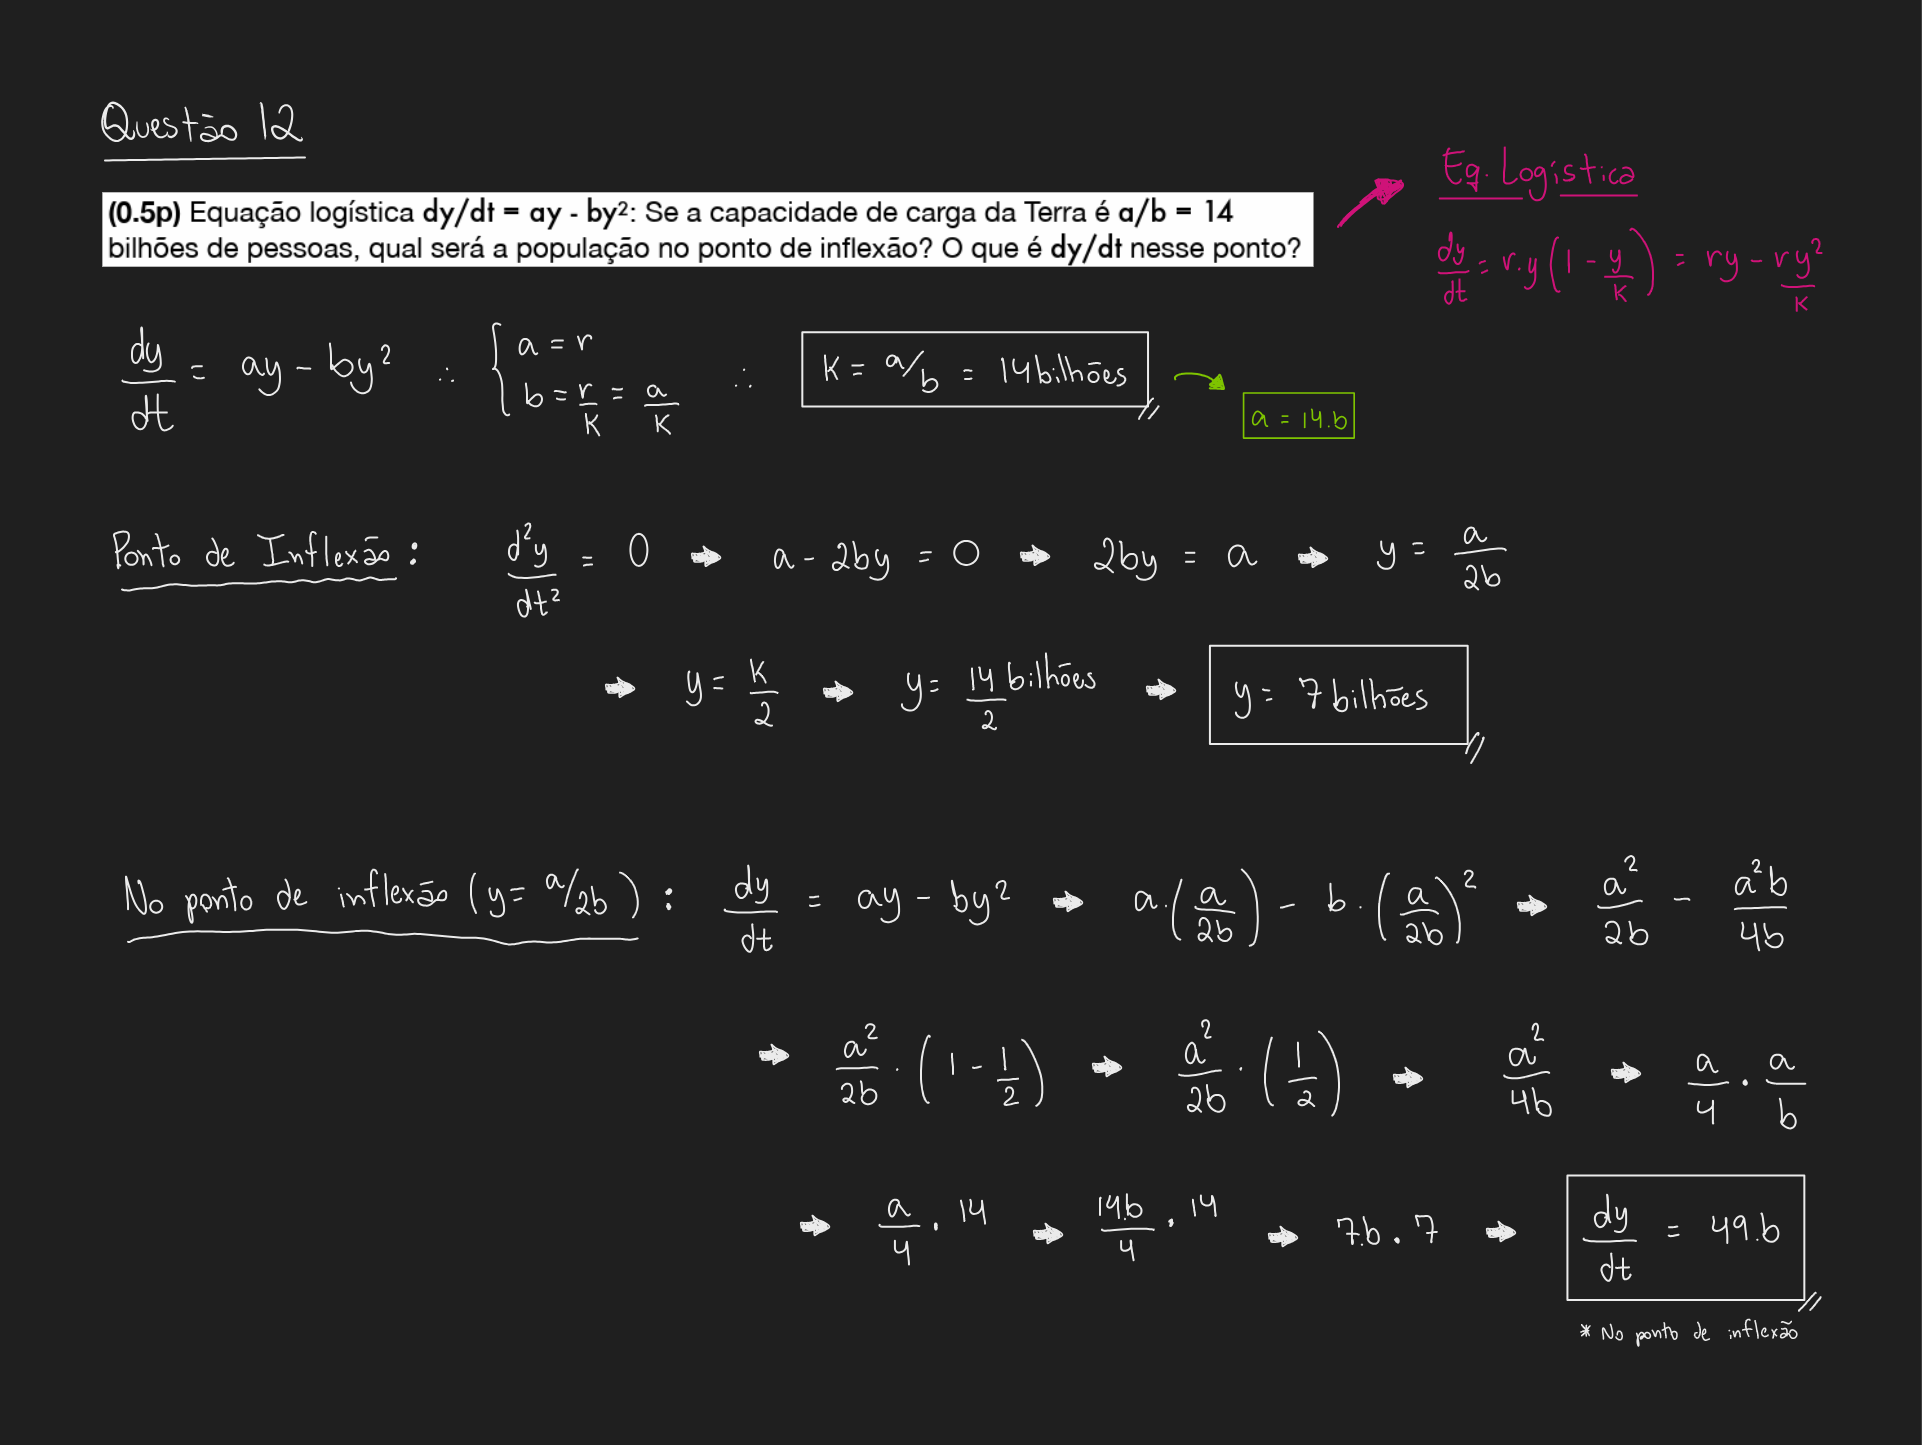 Questão 12
(0.5p) Equação logística dy/dt = ay - by²: Se a capacidade de carga da Terra é a/b = 14
bilhões de pessoas, qual será a população no ponto de inflexão? O que é dy/dt nesse ponto?
Eq. Logística
dy/dt = r.y (1 - y/K) = ry - ry²/K
dy/dt = ay - by² ∴ { a = r ; b = r/K = a/K ∴ K = a/b = 14 bilhões
a = 14.b
Ponto de Inflexão: d²y/dt² = 0 → a - 2by = 0 → 2by = a → y = a/2b
→ y = K/2 → y = 14/2 bilhões → y = 7 bilhões
No ponto de inflexão (y = a/2b): dy/dt = ay - by² → a.(a/2b) - b.(a/2b)² → a²/2b - a²b/4b
→ a²/2b . (1 - 1/2) → a²/2b . (1/2) → a²/4b → a/4 . a/b
→ a/4 . 14 → 14b/4 . 14 → 7.b . 7 → dy/dt = 49.b
* No ponto de inflexão